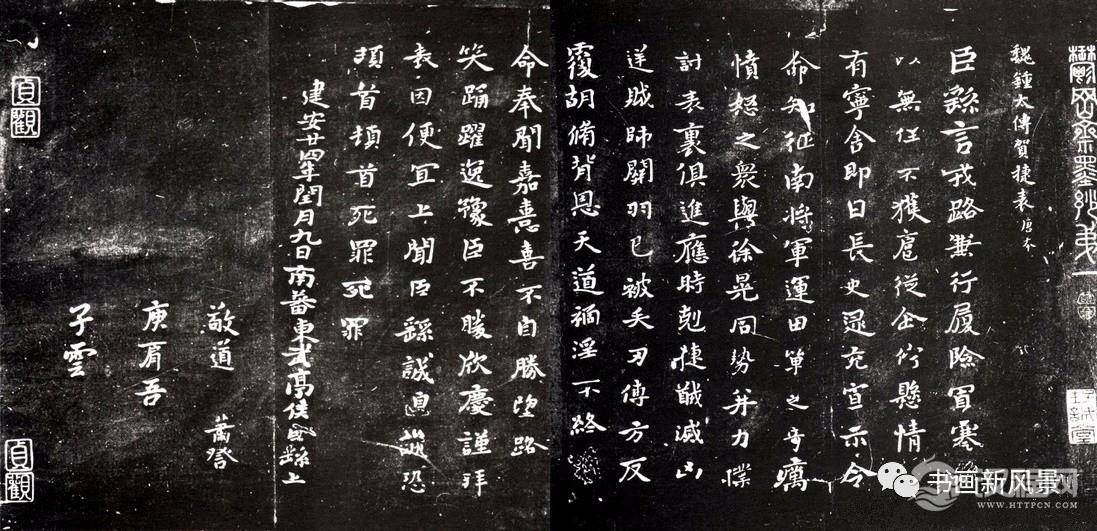 鬱岡齋墨玅弟一
魏鍾太傅賀捷表 唐本
臣繇言戎路兼行履險冒寒臣
以無任不獲扈從企佇懸情
有寧舍即日長史逯充宣示令
命知征南將軍運田單之奇厲
憤怒之衆與徐晃同勢并力撲
討表裏俱進應時剋捷馘滅凶
逆賊帥關羽已被矢刃傅方反
覆胡脩背恩天道禍淫不終
命奉聞嘉憙喜不自勝望路
笑踊躍逸豫臣不勝欣慶謹拜
表因便宜上聞臣繇誠惶誠恐
頓首頓首死罪死罪
建安廿四年閏月九日南蕃東武亭侯臣繇上
敬道
庾肩吾
子雲
貞觀
貞觀
书画新风景
WWW.HTTPCN.COM